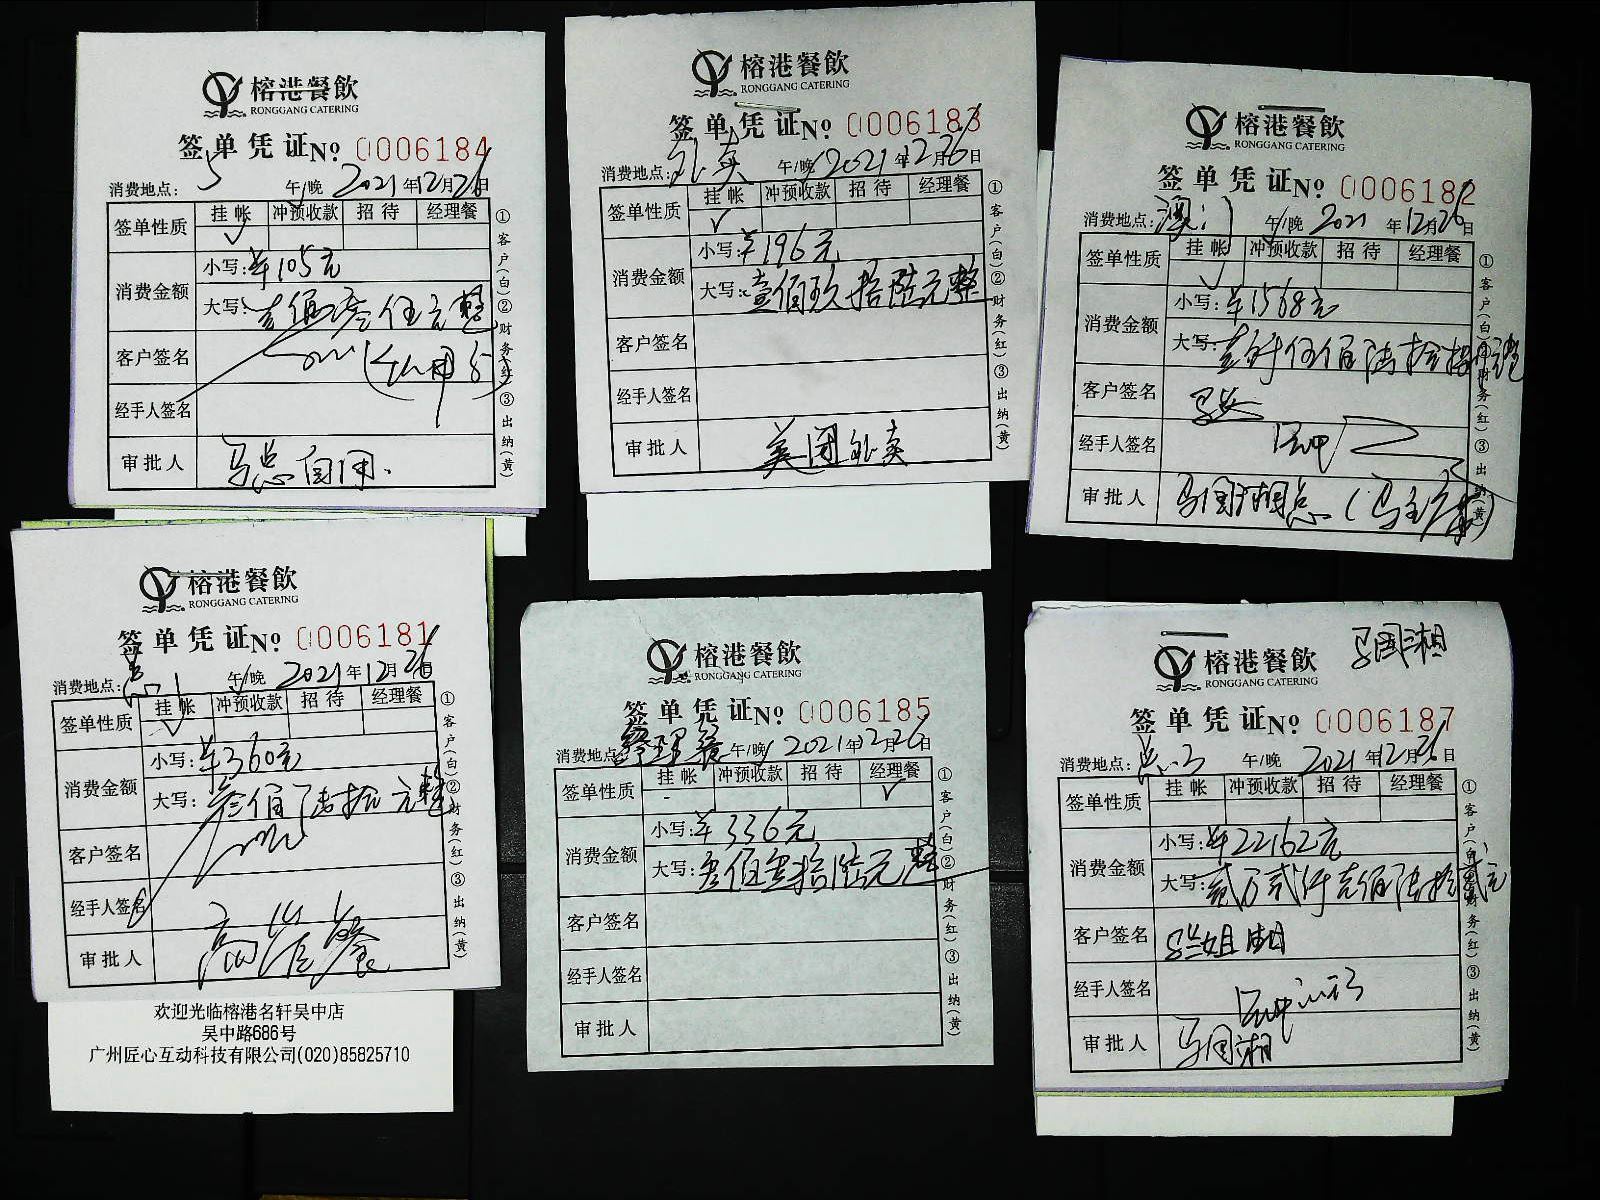 榕港餐飲
RONGGANG CATERING
签单凭证 No 0006184
消费地点: 5 午/晚 2021年12月26日
签单性质 挂帐 冲预收款 招待 经理餐
✓
消费金额 小写: ¥105元
大写: 壹佰零伍元整
客户签名
经手人签名
审批人 马总自用.
①客户(白)②财务(红)③出纳(黄)
榕港餐飲
RONGGANG CATERING
签单凭证 No 0006183
消费地点: 外卖 午/晚 2021年12月26日
签单性质 挂帐 冲预收款 招待 经理餐
✓
消费金额 小写: ¥196元
大写: 壹佰玖拾陆元整
客户签名
经手人签名
审批人 美团外卖
①客户(白)②财务(红)③出纳(黄)
榕港餐飲
RONGGANG CATERING
签单凭证 No 0006182
消费地点: 澳门 午/晚 2021年12月26日
签单性质 挂帐 冲预收款 招待 经理餐
✓
消费金额 小写: ¥1568元
大写: 壹仟伍佰陆拾捌元整
客户签名
经手人签名
审批人 马国湘总
①客户(白)②财务(红)③出纳(黄)
榕港餐飲
RONGGANG CATERING
签单凭证 No 0006181
消费地点: 午/晚 2021年12月26日
签单性质 挂帐 冲预收款 招待 经理餐
✓
消费金额 小写: ¥360元
大写: 叁佰陆拾元整
客户签名
经手人签名
审批人 高管餐
①客户(白)②财务(红)③出纳(黄)
欢迎光临榕港名轩吴中店
吴中路686号
广州匠心互动科技有限公司(020)85825710
榕港餐飲
RONGGANG CATERING
签单凭证 No 0006185
消费地点: 经理餐 午/晚 2021年12月26日
签单性质 挂帐 冲预收款 招待 经理餐
✓
消费金额 小写: ¥336元
大写: 叁佰叁拾陆元整
客户签名
经手人签名
审批人
①客户(白)②财务(红)③出纳(黄)
马国湘
榕港餐飲
RONGGANG CATERING
签单凭证 No 0006187
消费地点: 午/晚 2021年12月26日
签单性质 挂帐 冲预收款 招待 经理餐
消费金额 小写: ¥22162元
大写: 贰万贰仟壹佰陆拾贰元
客户签名
经手人签名
审批人 马国湘
①客户(白)②财务(红)③出纳(黄)